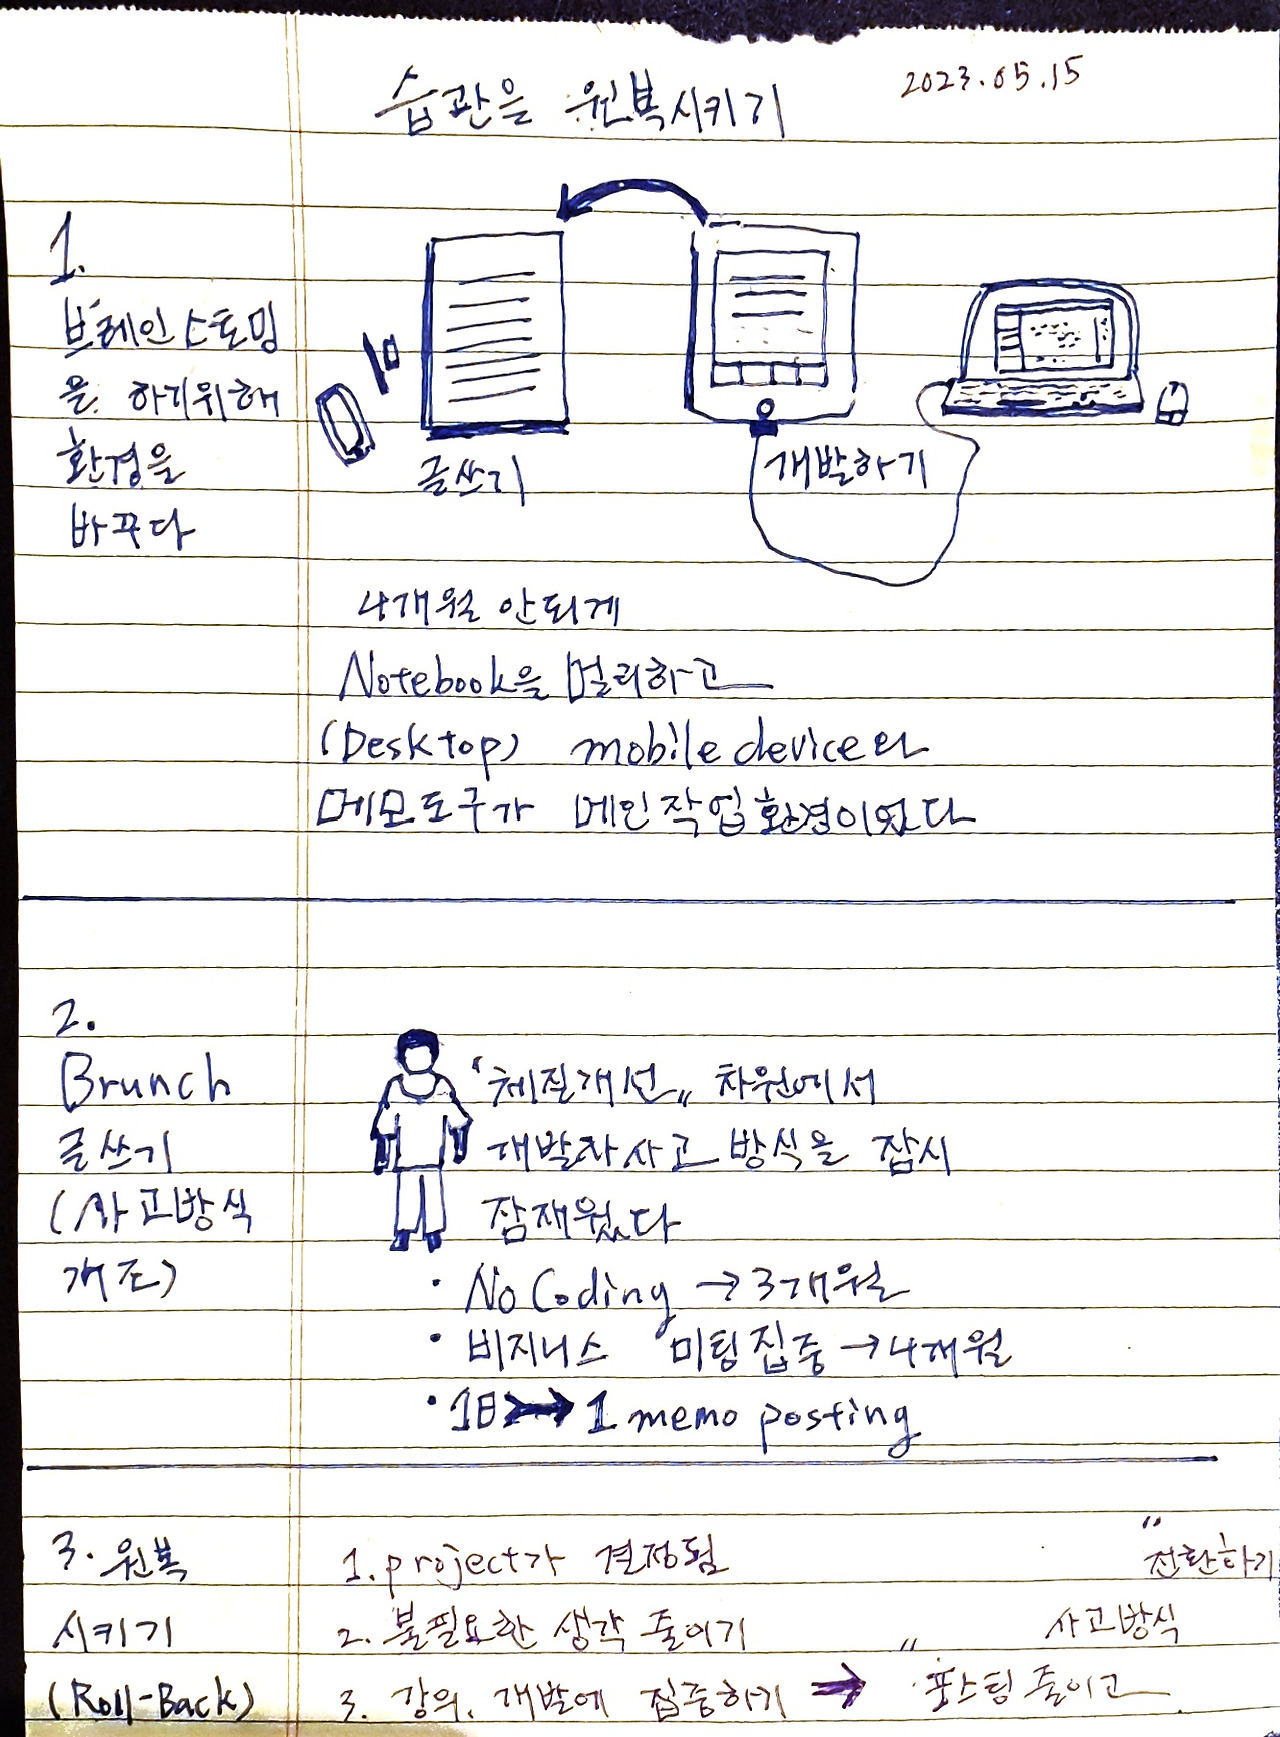 습관을 원복시키기
2023.05.15
1.
브레인스토밍
을 하기위해
환경을
바꾸다
글쓰기
개발하기
4개월 안되게
Notebook을 멀리하고
(Desktop) mobile device와
메모도구가 메인작업환경이었다
2.
Brunch
글쓰기
(사고방식
개조)
"체질개선" 차원에서
개발자사고 방식을 잠시
잠재웠다
· No Coding → 3개월
· 비지니스 미팅집중 → 4개월
· 1日 → 1 memo posting
3. 원복
시키기
(Roll-Back)
1. project가 결정됨
2. 불필요한 생각 줄이기
3. 강의, 개발에 집중하기 → "포스팅 줄이고
사고방식
전환하기"